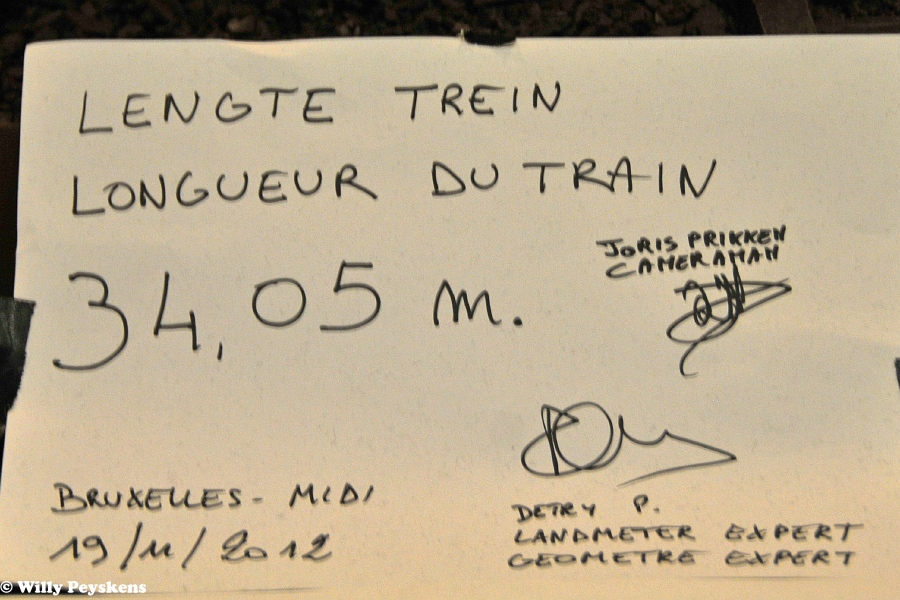 LENGTE TREIN
LONGUEUR DU TRAIN
34,05 m.
JORIS PRIKKEN
CAMERAMAN
BRUXELLES - MIDI
19/11/2012
DETRY P.
LANDMETER EXPERT
GEOMETRE EXPERT
© Willy Peyskens